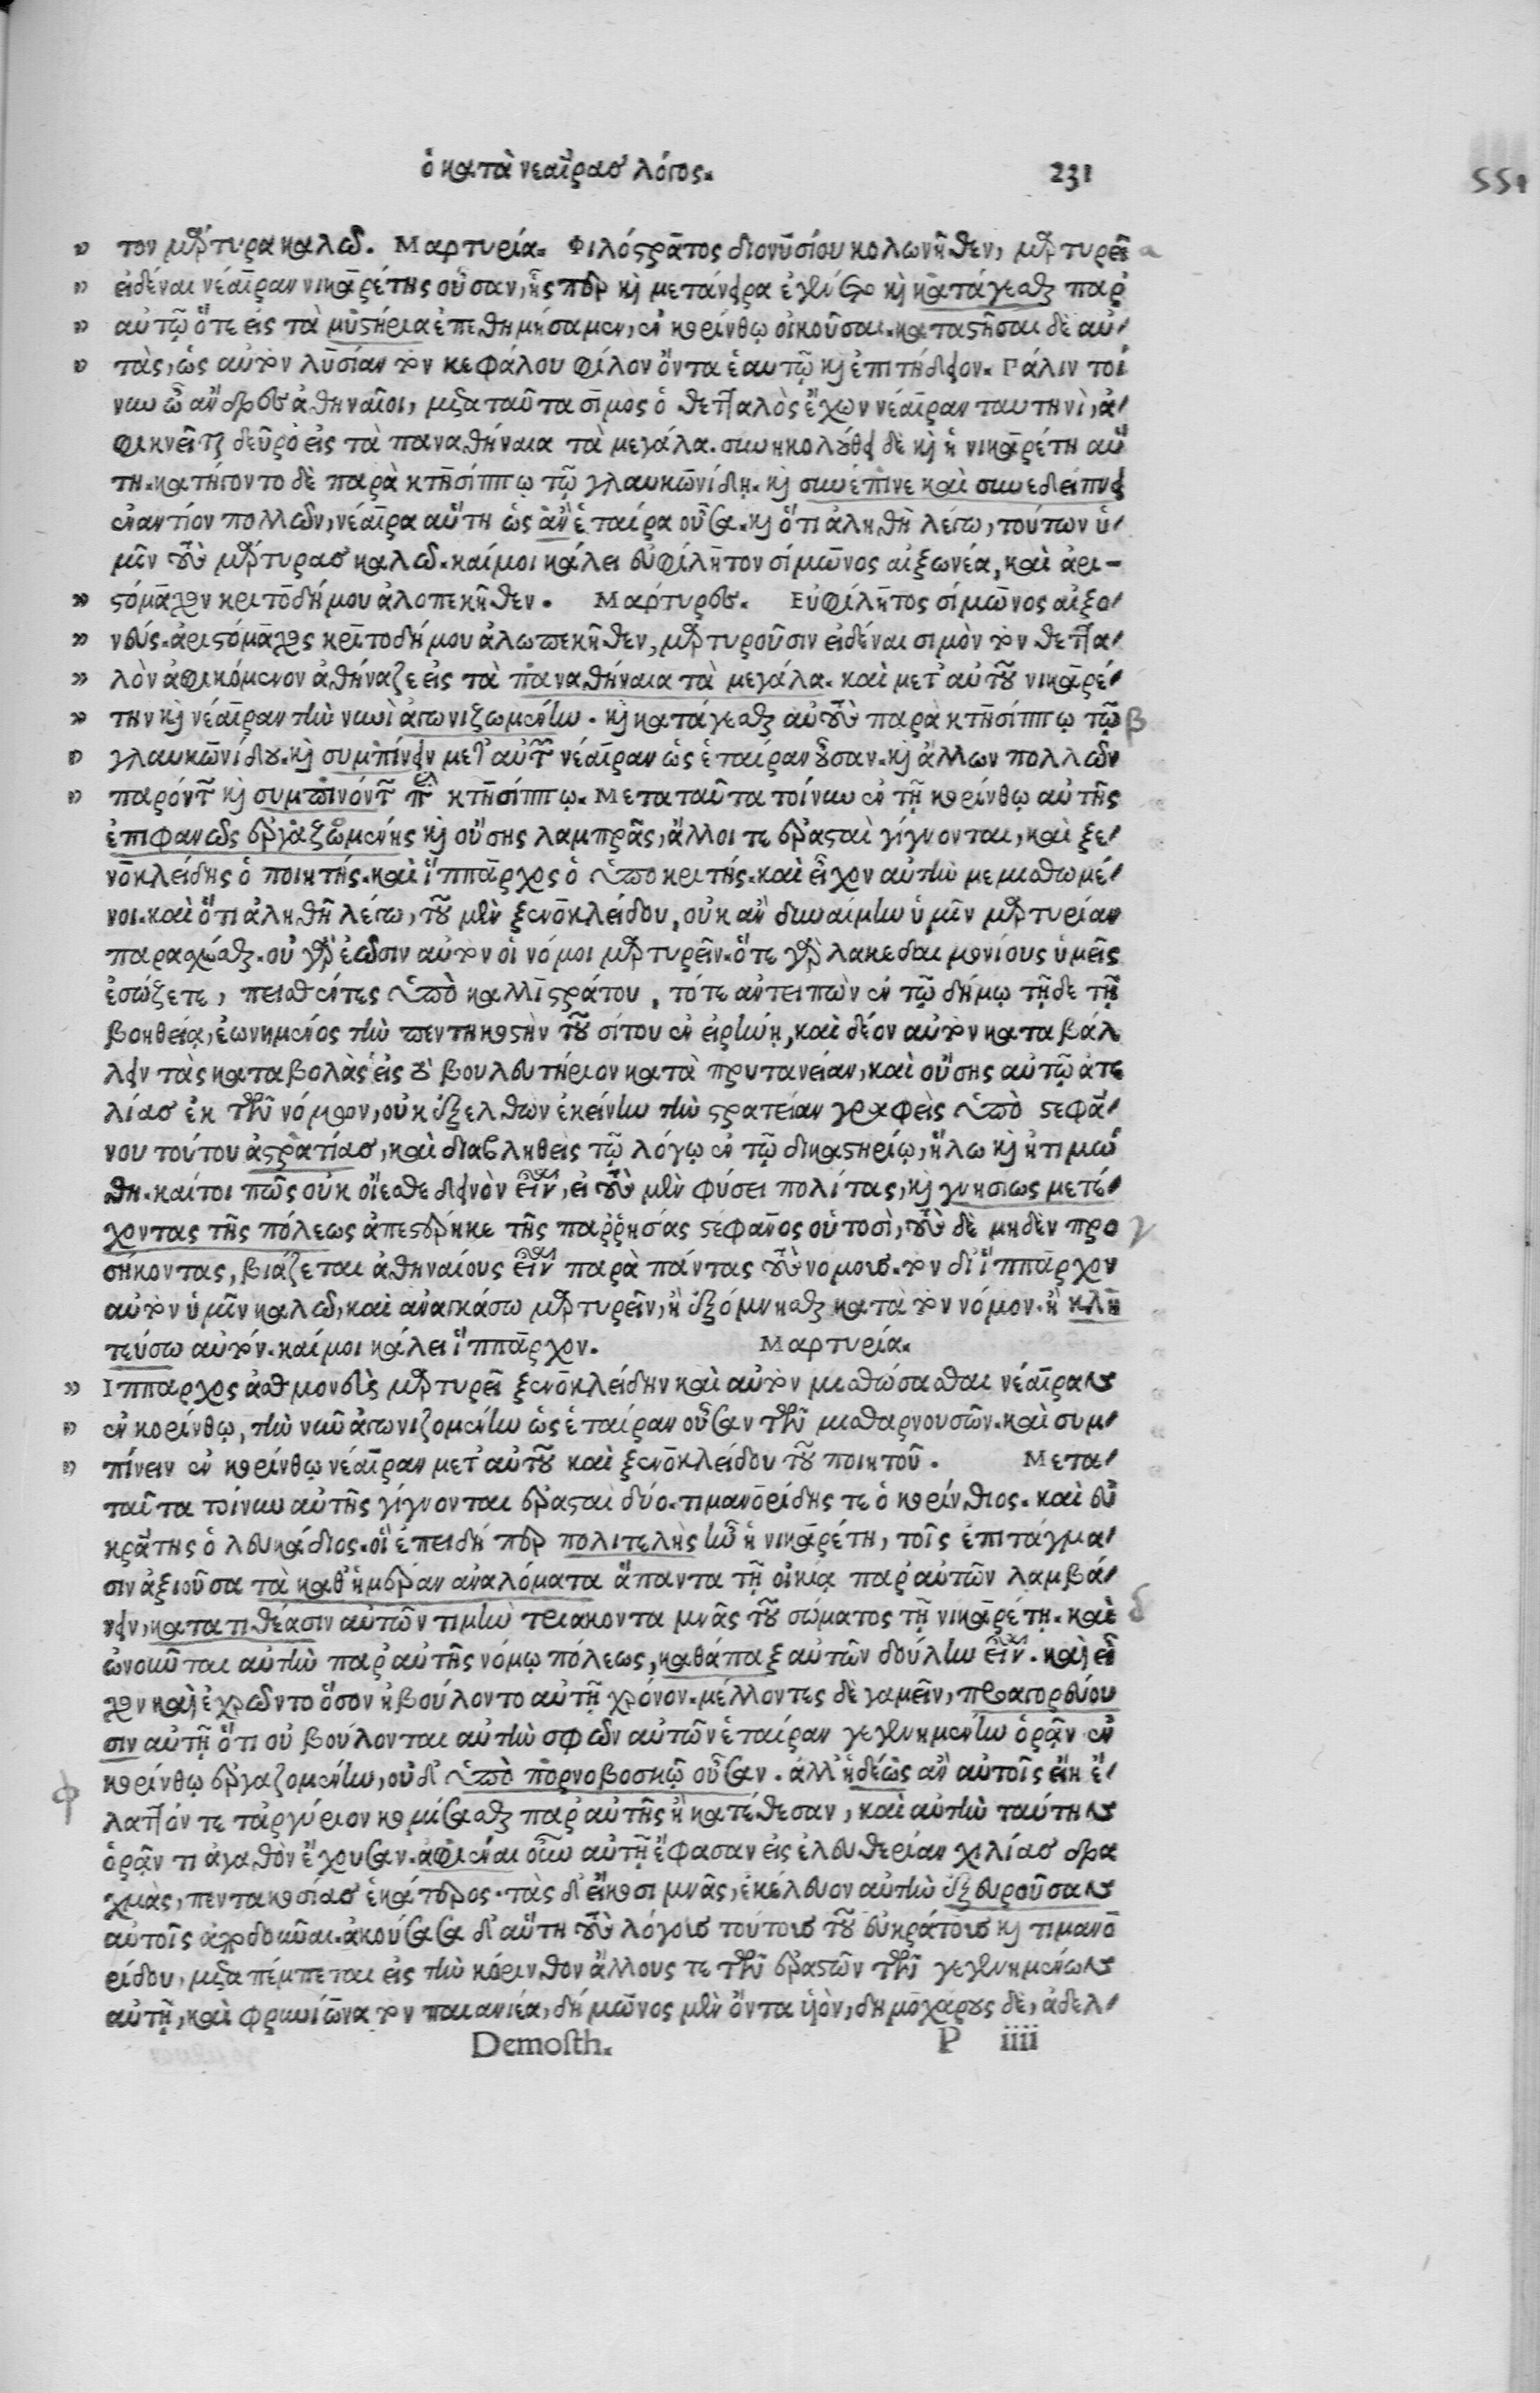 ὁ κατὰ νεαίρας λόγος. 231
551
τον μάρτυρα καλῶ. Μαρτυρία. Φιλόστρατος διονυσίου κολωνῆθεν, μαρτυρεῖ
εἰδέναι νέαιραν νικαρέτης οὖσαν, ἧς περ καὶ μετάνειρα ἐγένετο καὶ κατάγεσθαι παρ'
αὐτῷ ὅτε εἰς τὰ μυστήρια ἐπεδήμησαμεν, ἐν κορίνθῳ οἰκοῦσαι. καταστῆσαι δὲ αὐ-
τὰς, ὡς αὐτὸν λυσίαν τὸν κεφάλου φίλον ὄντα ἑαυτῷ καὶ ἐπιτήδειον. Πάλιν τοί
νυν ὦ ἄνδρες ἀθηναῖοι, μετα ταῦτα σῖμος ὁ θετταλὸς ἔχων νέαιραν ταυτηνὶ, ἀ-
φικνεῖται δεῦρο εἰς τὰ παναθήναια τὰ μεγάλα. συνηκολούθει δὲ καὶ ἡ νικαρέτη αὐ
τῇ. κατήγοντο δὲ παρὰ κτησίππῳ τῷ γλαυκωνίδῃ. καὶ συνέπινε καὶ συνεδείπνει
ἐναντίον πολλῶν, νέαιρα αὕτη ὡς ἂν ἑταίρα οὖσα. καὶ ὅτι ἀληθῆ λέγω, τούτων ὑ-
μῖν τοὺς μάρτυρας καλῶ. καί μοι κάλει εὐφίλητον σίμωνος αἰξωνέα, καὶ ἀρι-
στόμαχον κριτοδήμου ἀλοπεκῆθεν. Μάρτυρες. Εὐφίλητος σίμωνος αἰξο-
νεύς. ἀριστόμαχος κριτοδήμου ἀλωπεκῆθεν, μαρτυροῦσιν εἰδέναι σιμὸν τὸν θεττα-
λὸν ἀφικόμενον ἀθήναζε εἰς τὰ παναθήναια τὰ μεγάλα. καὶ μετ' αὐτοῦ νικαρέ-
την καὶ νέαιραν τὴν νυνὶ ἀγωνιζομένην. καὶ κατάγεσθαι αὐτοὺς παρὰ κτησίππῳ τῷ β
γλαυκωνίδου. καὶ συμπίνειν μετ' αὐτῶν νέαιραν ὡς ἑταίραν οὖσαν. καὶ ἄλλων πολλῶν
παρόντων καὶ συμπινόντων παρὰ κτησίππῳ. Μετα ταῦτα τοίνυν ἐν τῇ κορίνθῳ αὐτῆς
ἐπιφανῶς ἐργαζομένης καὶ οὔσης λαμπρᾶς, ἄλλοι τε ἐρασταὶ γίγνονται, καὶ ξε-
νοκλείδης ὁ ποιητής. καὶ ἵππαρχος ὁ ὑποκριτής. καὶ εἶχον αὐτὴν μεμισθωμέ-
νοι. καὶ ὅτι ἀληθῆ λέγω, τοῦ μὲν ξενοκλείδου, οὐκ ἂν δυναίμην ὑμῖν μαρτυρίαν
παρασχέσθαι. οὐ γὰρ ἐῶσιν αὐτὸν οἱ νόμοι μαρτυρεῖν. ὅτε γὰρ λακεδαιμονίους ὑμεῖς
ἐσώζετε, πεισθέντες ὑπὸ καλλιστράτου, τότε ἀντειπὼν ἐν τῷ δήμῳ τῇδε τῇ
βοηθείᾳ, ἐωνημένος τὴν πεντηκοστὴν τοῦ σίτου ἐν εἰρήνῃ, καὶ δέον αὐτὸν καταβάλ
λειν τὰς καταβολὰς εἰς τὸ βουλευτήριον κατὰ πρυτανείαν, καὶ οὔσης αὐτῷ ἀτε
λίας ἐκ τῶν νόμων, οὐκ ἐξελθων ἐκείνην τὴν στρατείαν γραφεὶς ὑπὸ στεφά-
νου τούτου ἀστρατίας, καὶ διαβληθεὶς τῷ λόγῳ ἐν τῷ δικαστηρίῳ, ἥλω καὶ ἠτιμώ
θη. καίτοι πῶς οὐκ οἴεσθε δεινὸν εἶναι, εἰ τοὺς μὲν φύσει πολίτας, καὶ γνησιως μετέ-
χοντας τῆς πόλεως ἀπεστέρηκε τῆς παρρησίας στέφανος οὑτοσὶ, τοὺς δὲ μηδὲν προ γ
σήκοντας, βιάζεται ἀθηναίους εἶναι παρὰ πάντας τοὺς νομους. τὸν δ' ἵππαρχον
αὐτὸν ὑμῖν καλῶ, καὶ ἀναγκάσω μαρτυρεῖν, ἢ ἐξόμνησθαι κατὰ τὸν νόμον. ἢ κλη
τεύσω αὐτόν. καί μοι κάλει ἵππαρχον. Μαρτυρία.
Ιππαρχος ἀθμονεὺς μαρτυρεῖ ξενοκλείδην καὶ αὐτὸν μισθώσασθαι νέαιραν
ἐν κορίνθῳ, τὴν νῦν ἀγωνιζομένην ὡς ἑταίραν οὖσαν τῶν μισθαρνουσῶν. καὶ συμ-
πίνειν ἐν κορίνθῳ νέαιραν μετ' αὐτοῦ καὶ ξενοκλείδου τοῦ ποιητοῦ. Μετα-
ταῦτα τοίνυν αὐτῆς γίγνονται ἐρασταὶ δύο. τιμανορίδης τε ὁ κορίνθιος. καὶ εὐ
κράτης ὁ λευκάδιος. οἳ ἐπειδή περ πολιτελὴς ἦν ἡ νικαρέτη, τοῖς ἐπιτάγμα-
σιν ἀξιοῦσα τὰ καθ' ἡμέραν ἀναλόματα ἅπαντα τῇ οἰκίᾳ παρ' αὐτῶν λαμβά-
νειν, κατατιθέασιν αὐτῶν τιμὴν τριακοντα μνᾶς τοῦ σώματος τῇ νικαρέτῃ. καὶ δ
ὠνοῦνται αὐτὴν παρ' αὐτῆς νόμῳ πόλεως, καθάπαξ αὐτῶν δούλην εἶναι. καὶ εἶ
χον καὶ ἐχρῶντο ὅσον ἠβούλοντο αὐτῇ χρόνον. μέλλοντες δὲ γαμεῖν, προαγορεύου
σιν αὐτῇ ὅτι οὐ βούλονται αὐτὴν σφῶν αὐτῶν ἑταίραν γεγενημένην ὁρᾷν ἐν
κορίνθῳ ἐργαζομένην, οὐδ' ὑπὸ πορνοβοσκῷ οὖσαν. ἀλλ' ἡδέως ἂν αὐτοῖς εἴη ἔ-
λαττόν τε τἀργύριον κομίσασθαι παρ' αὐτῆς ἢ κατέθεσαν, καὶ αὐτὴν ταύτην
ὁρᾷν τι ἀγαθὸν ἔχουσαν. ἀφιέναι οὖν αὐτῇ ἔφασαν εἰς ἐλευθερίαν χιλίας δρα
χμὰς, πεντακοσίας ἑκάτερος. τὰς δ' εἴκοσι μνᾶς, ἐκέλευον αὐτὴν ἐξευροῦσαν
αὐτοῖς ἀποδοῦναι. ἀκούσασα δ' αὕτη τοὺς λόγους τούτους τοῦ εὐκράτους καὶ τιμανο
ρίδου, μεταπέμπεται εἰς τὴν κόρινθον ἄλλους τε τῶν ἐραστῶν τῶν γεγενημένων
αὐτῇ, καὶ φρυνίωνα τὸν παιανιέα, δήμωνος μὲν ὄντα υἱὸν, δημοχάρους δὲ, ἀδελ-
Demosth. P iiii